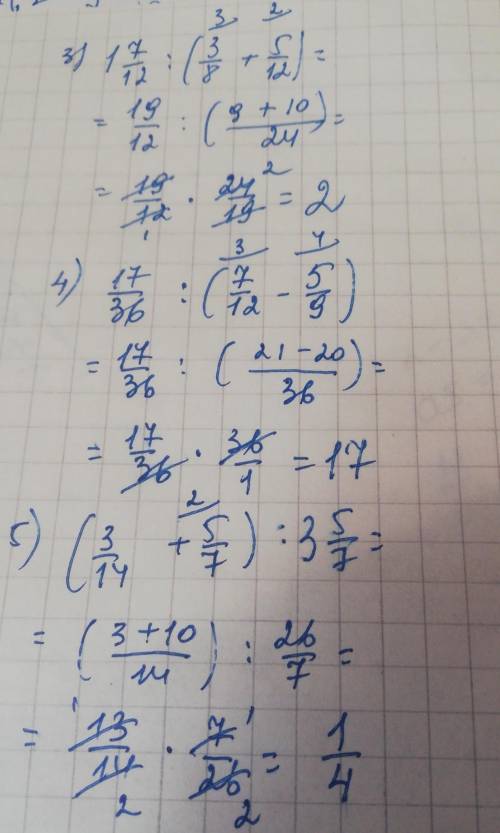 3) 1 7/12 : (3/8 + 5/12) =
= 19/12 : ((9 + 10)/24) =
= 19/12 · 24/19 = 2
4) 17/36 : (7/12 - 5/9)
= 17/36 : ((21 - 20)/36) =
= 17/36 · 36/1 = 17
5) (3/14 + 5/7) : 3 5/7 =
= ((3 + 10)/14) : 26/7 =
= 13/14 · 7/26 = 1/4